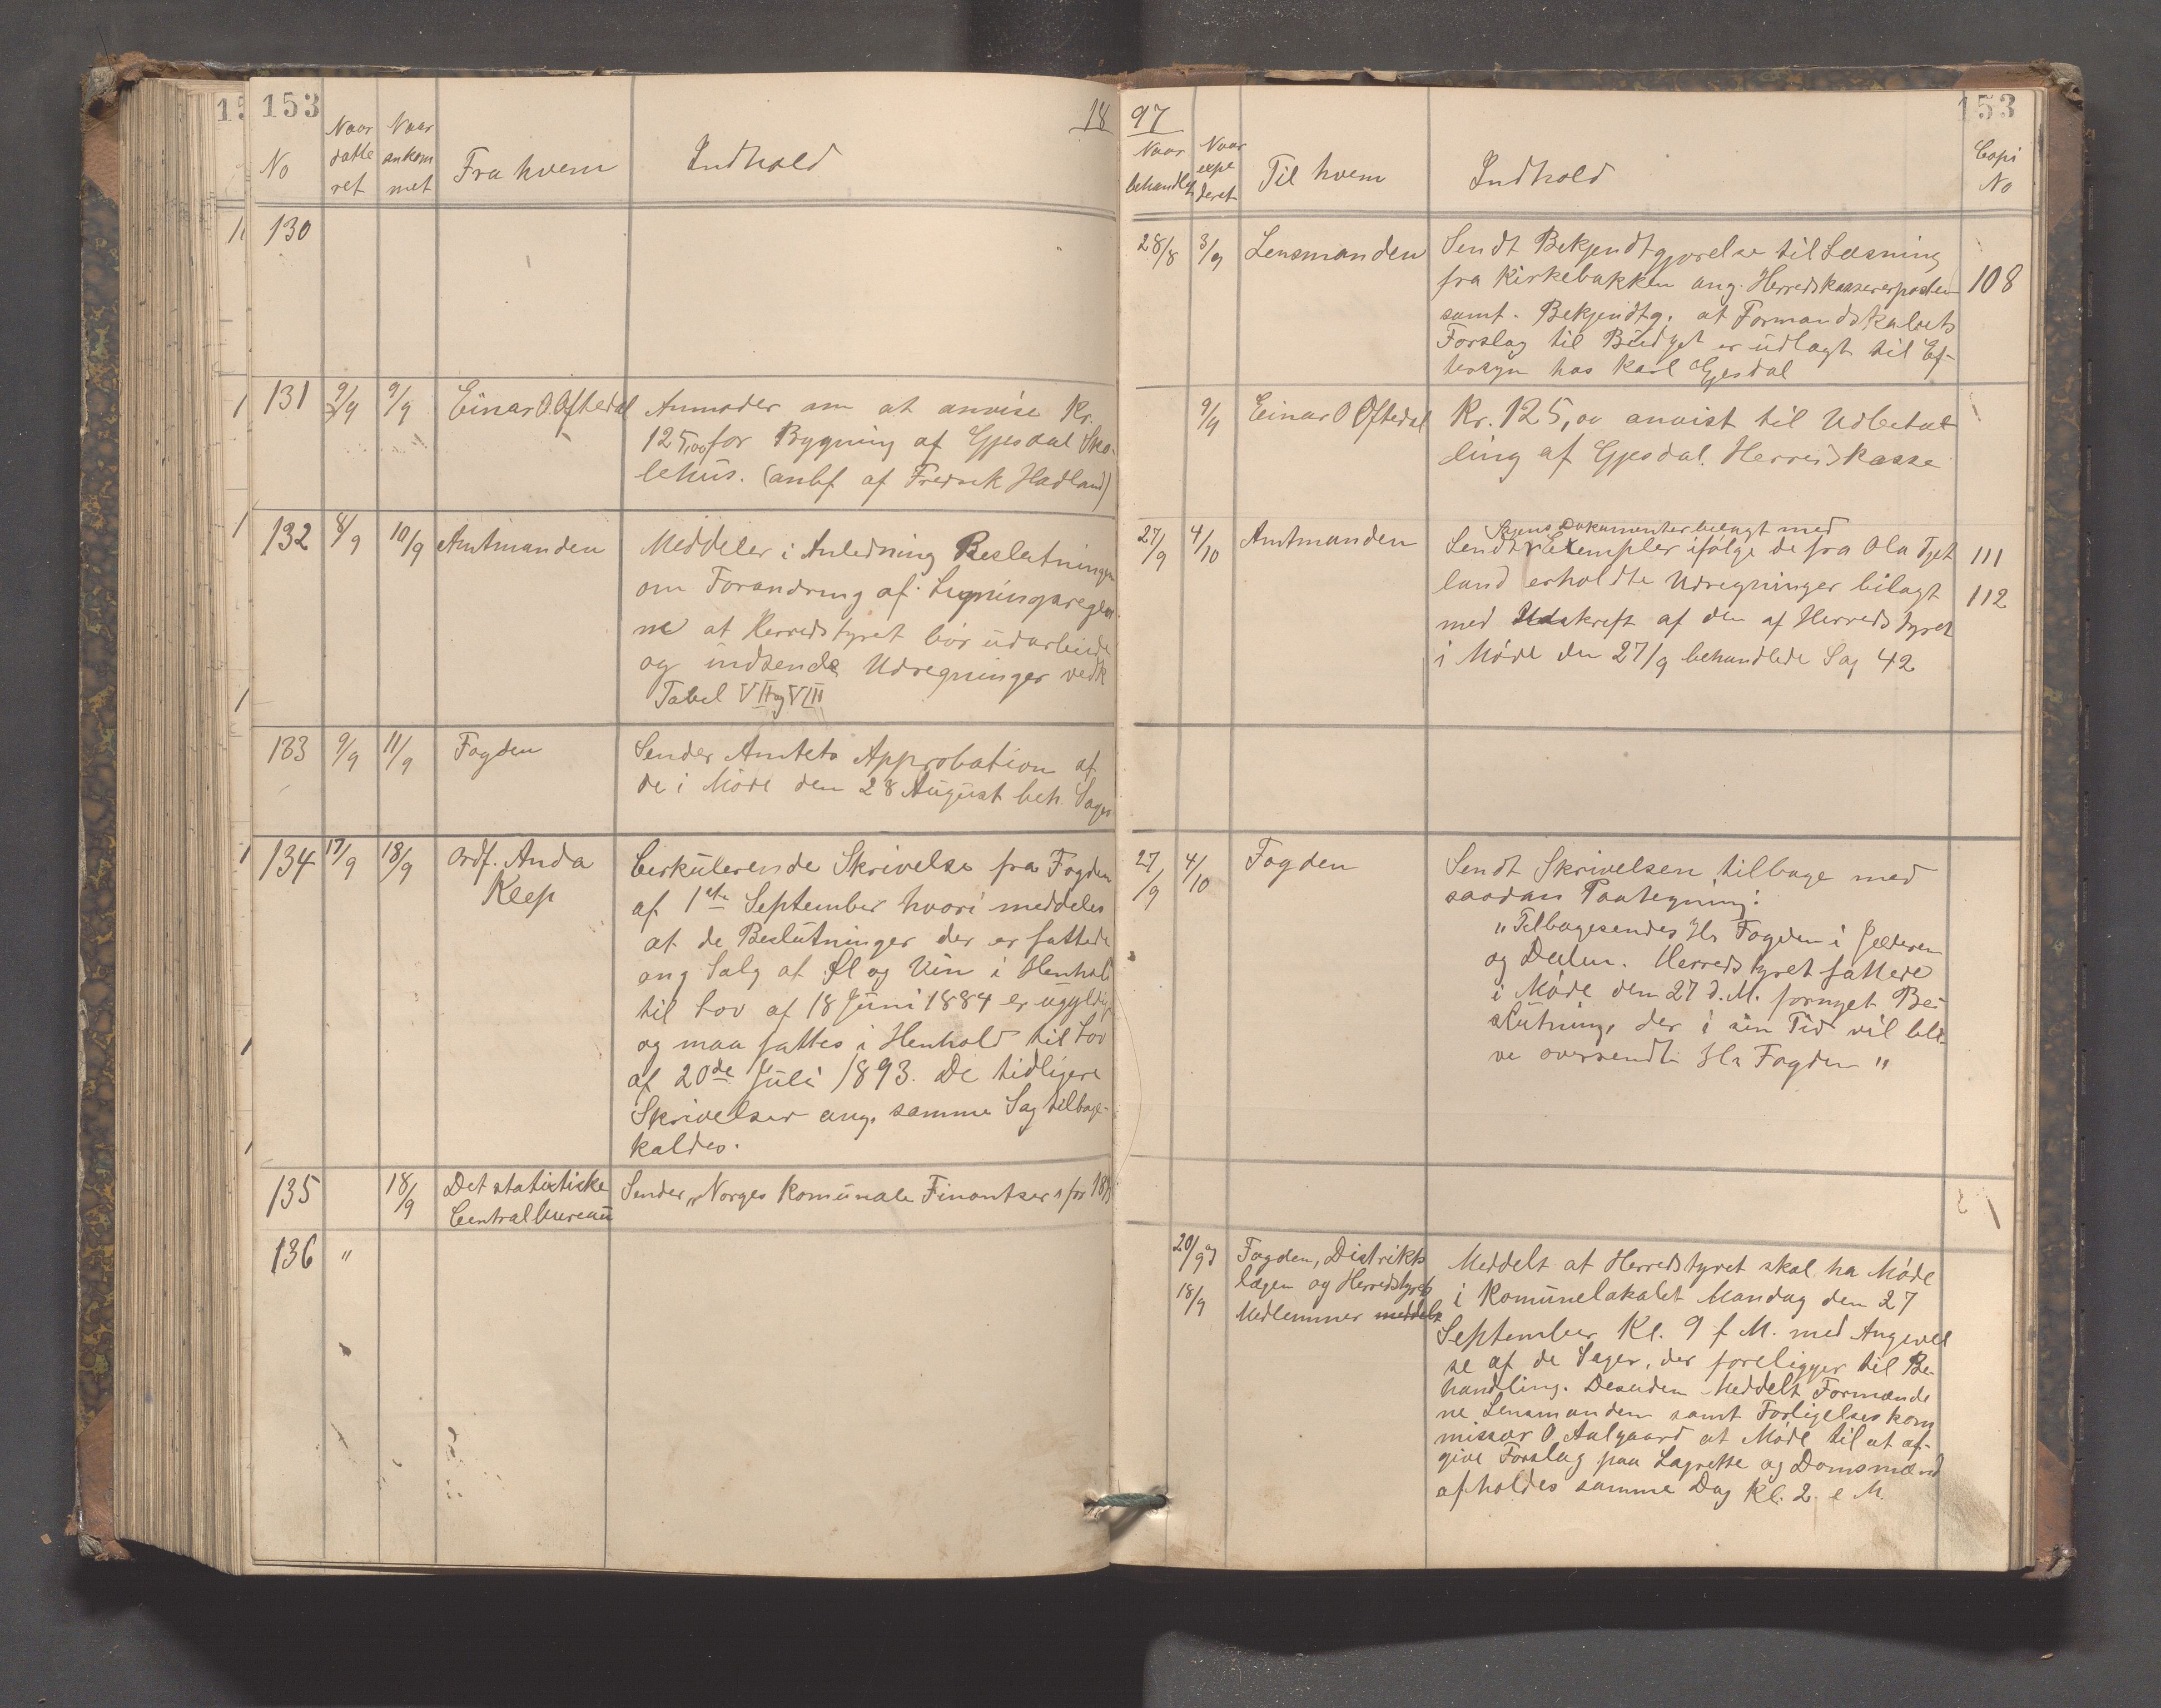 153
18
No
Naar datteret
Naar ankommet
Fra hvem
Indhold
130
131
9/9
9/9
Einar O. Oftedal
Anmoder om at anvise Kr.
125,00 for Bygning af Gjesdal Sko-
lehus. (anbf. af Fredrik Hadland)
132
8/9
10/9
Amtmanden
Meddeler i Anledning Beslutningen
om Forandring af Ligningsregler
ne at Herredstyret bør udarbeide
og indsende Udregninger vedk
Tabel VII og VIII
133
9/9
11/9
Fogden
Sender Amtets Approbation af
de i Møde den 28 August beh. Sager
134
17/9
18/9
Ordf. Anda
Klep
Cirkulerende Skrivelse fra Fogden
af 1ste September hvori meddeles
at de Beslutninger der er fattede
ang Salg af Øl og Vin i Henhold
til Lov af 18 Juni 1884 er ugyldig
og maa fattes i Henhold til Lov
af 20de Juli 1893. De tidligere
Skrivelser ang. samme Sag tilbage-
kaldes.
135
18/9
Det statistiske
Centralbureau
Sender „Norges Komunale Finantser" for
136
"
97
153
Naar behandlet
Naar expederet
Til hvem
Indhold
Copi
No
28/8
3/9
Lensmanden
Sendt Bekjendtgjørelse til Læsning
fra Kirkebakken ang. Herredskassererposten
108
samt. Bekjendtg. at Formandskabets
Forslag til Budget er udlagt til Ef-
tersyn hos Karl Gjesdal
9/9
Einar O Oftedal
Kr. 125,00 anvist til Udbetal
ling af Gjesdal. Herredskasse
27/9
4/10
Amtmanden
Sagens Dokumenter bilagt med
Sendt Exempler ifølge de fra Ola Tjet
111
land erholdte Udregninger bilagt
112
med Udskrift af den af Herredstyret
i Møde den 27/9 behandlede Sag 42
27/9
4/10
Fogden
Sendt Skrivelsen tilbage med
saadan Paategning:
"Tilbagesendes Hr Fogden i Jæderen
og Dalene. Herredstyret fattede
i Møde den 27 d. M. fornyet Be-
slutning, der i sin Tid vil bli-
ve oversendt Hr Fogden "
20/9 og
18/9
Fogden, Distrikts
lægen og Herredstyrets
Medlemmer meddelt
Meddelt at Herredstyret skal ha Møde
i Komunelokalet Mandag den 27
September Kl. 9 f M. med Angivel
se af de Sager, der foreligger til Be-
handling. Desuden Meddelt Formænde
ne Lensmanden samt Forligelseskom
missær O. Aalgaard at Møde til at af-
give Forslag paa Lagrette og Domsmænd
afholdes samme Dag Kl. 2 e M.